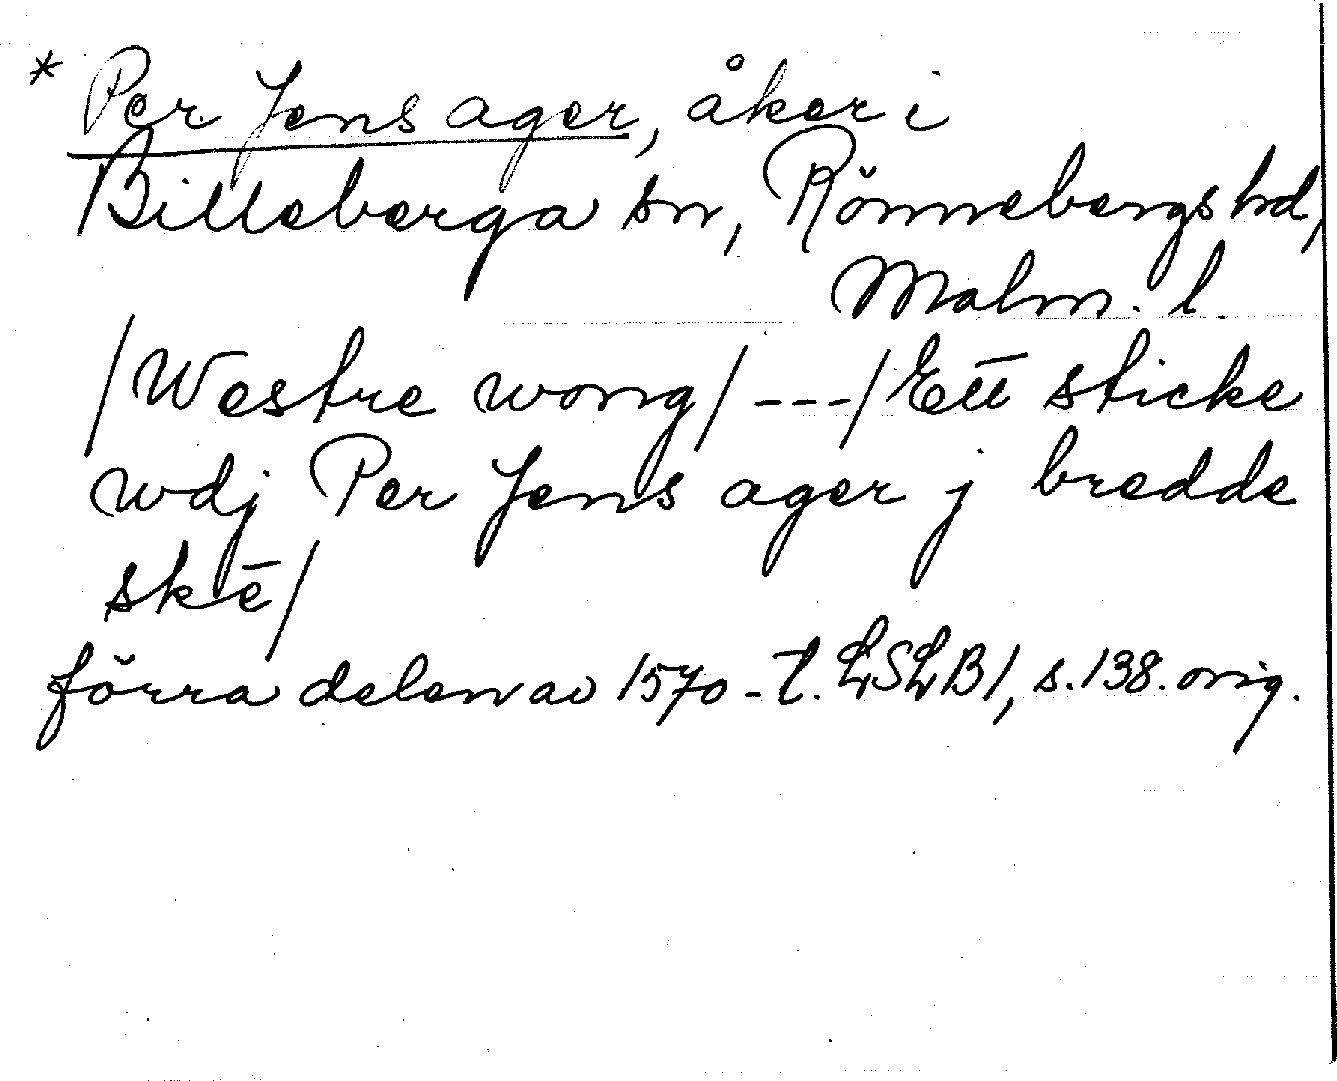 * Per Jens ager, åker i
Billeberga sn, Rönnebergs hd,
Malm. l.
/Westre wong/ ---/Ett sticke
wdj Per Jens ager j bredde
skē/
förra delen av 1570-t. LSLB1, s. 138. orig.